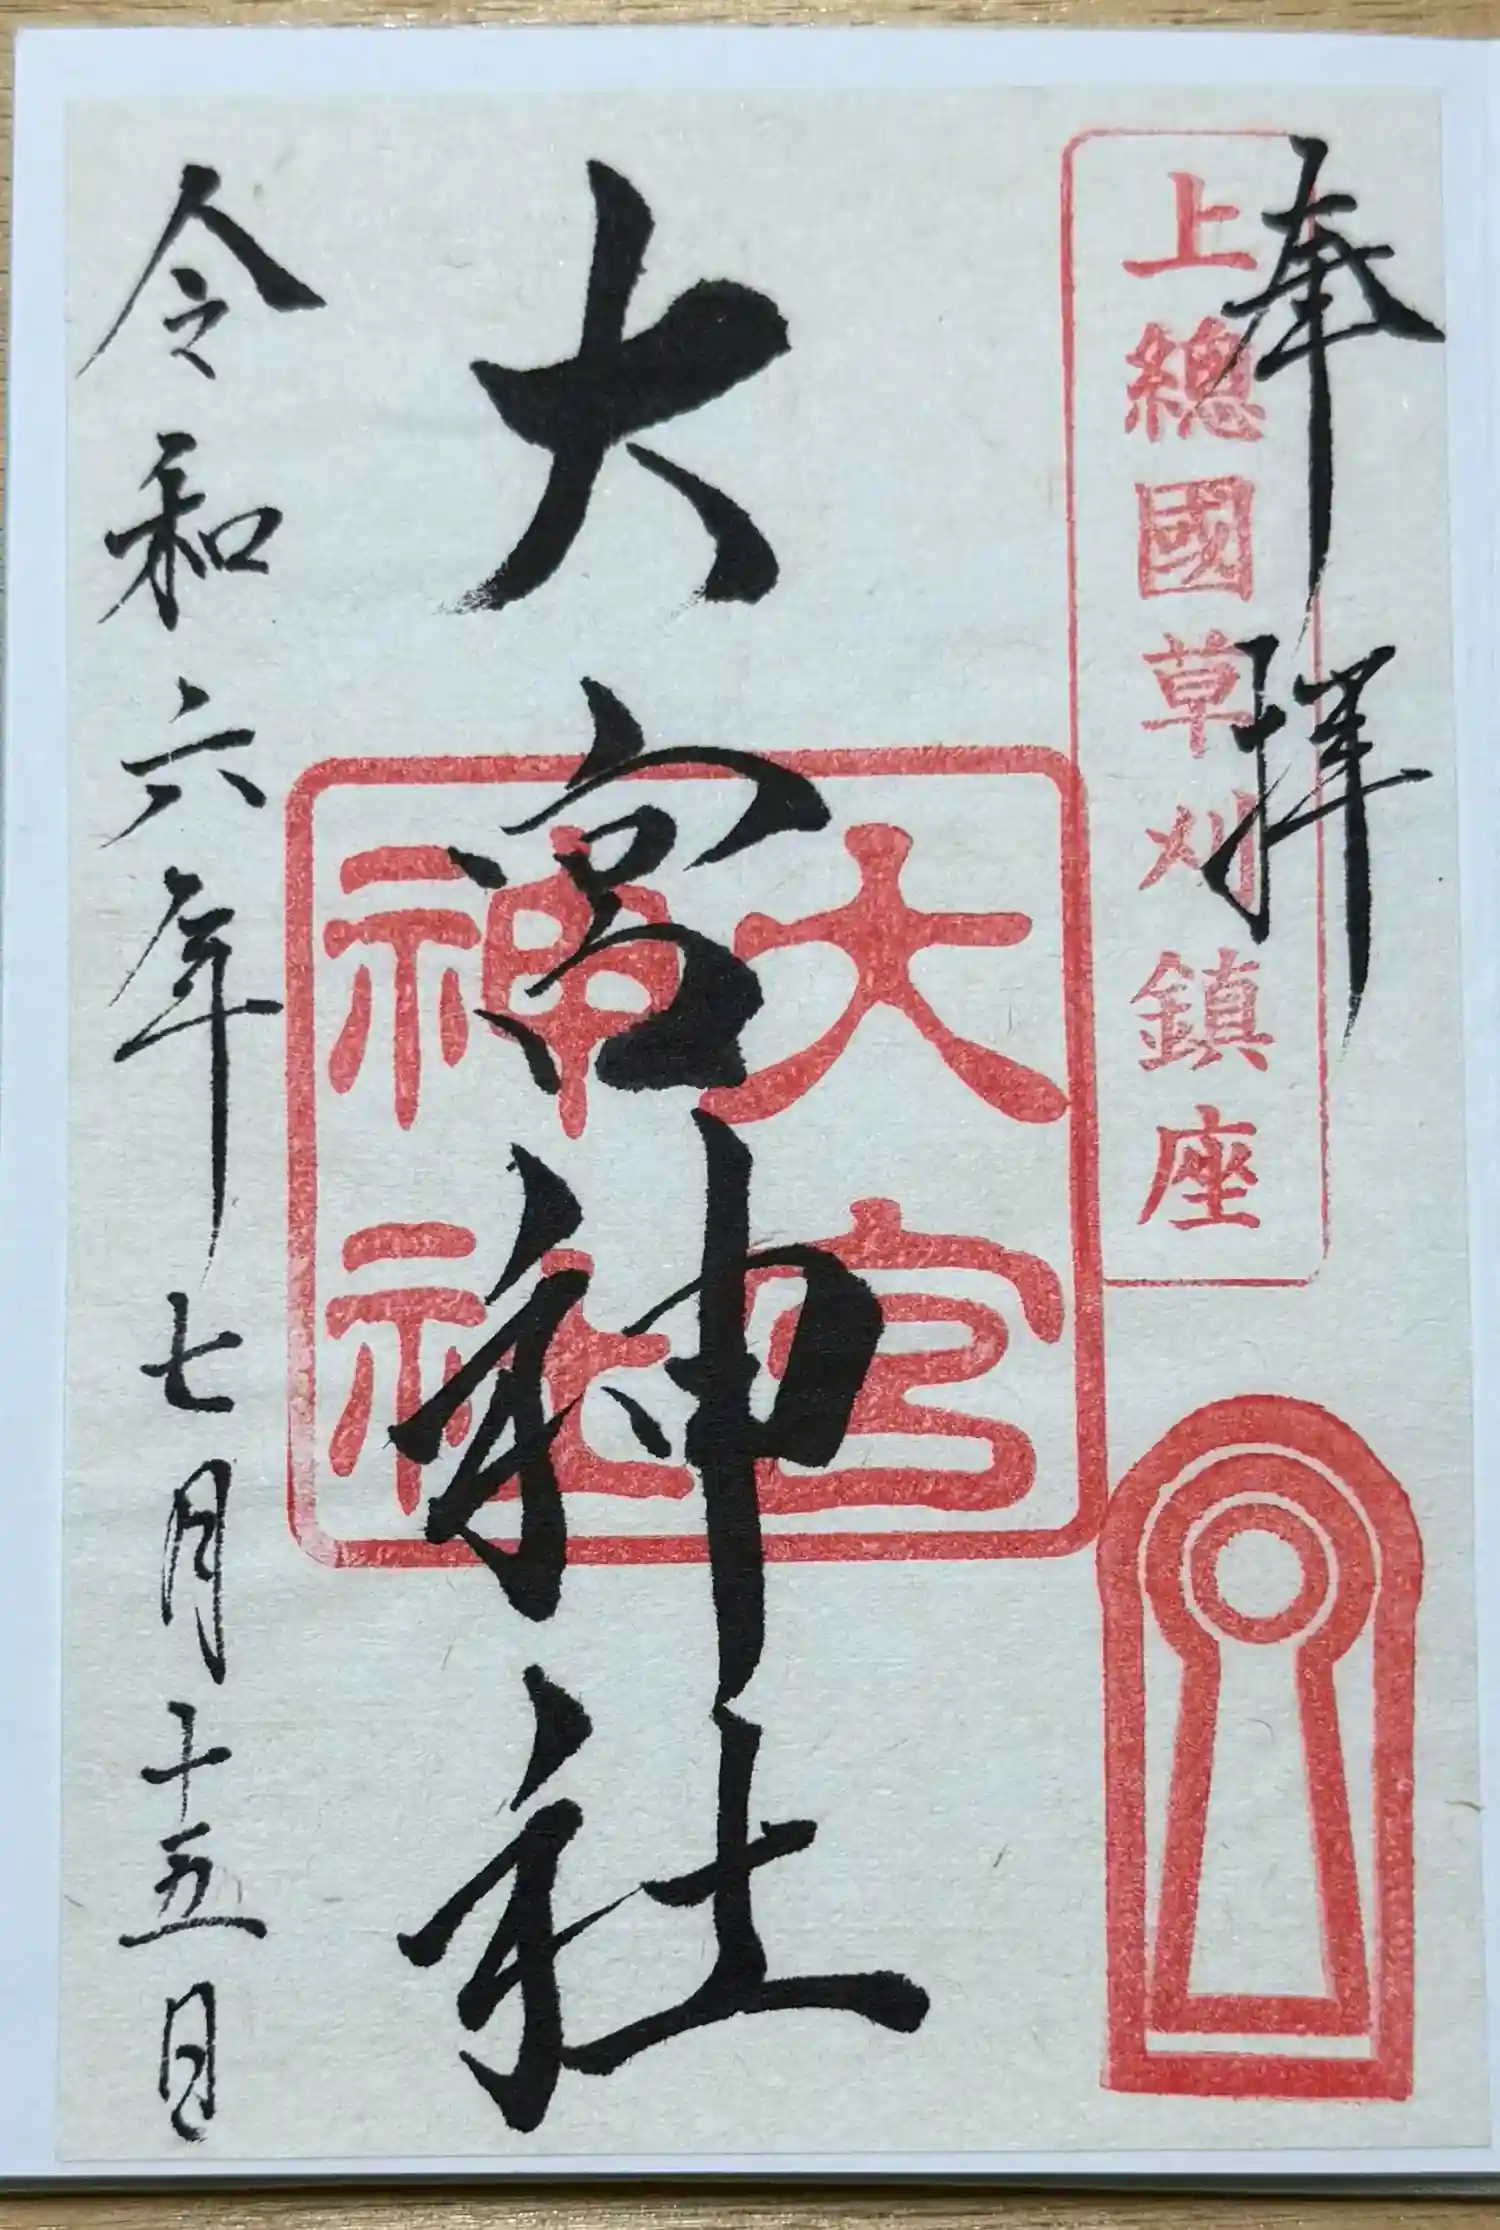 奉拝
上總國草刈鎮座
大宮神社
大宮
神社
令和六年七月十五日